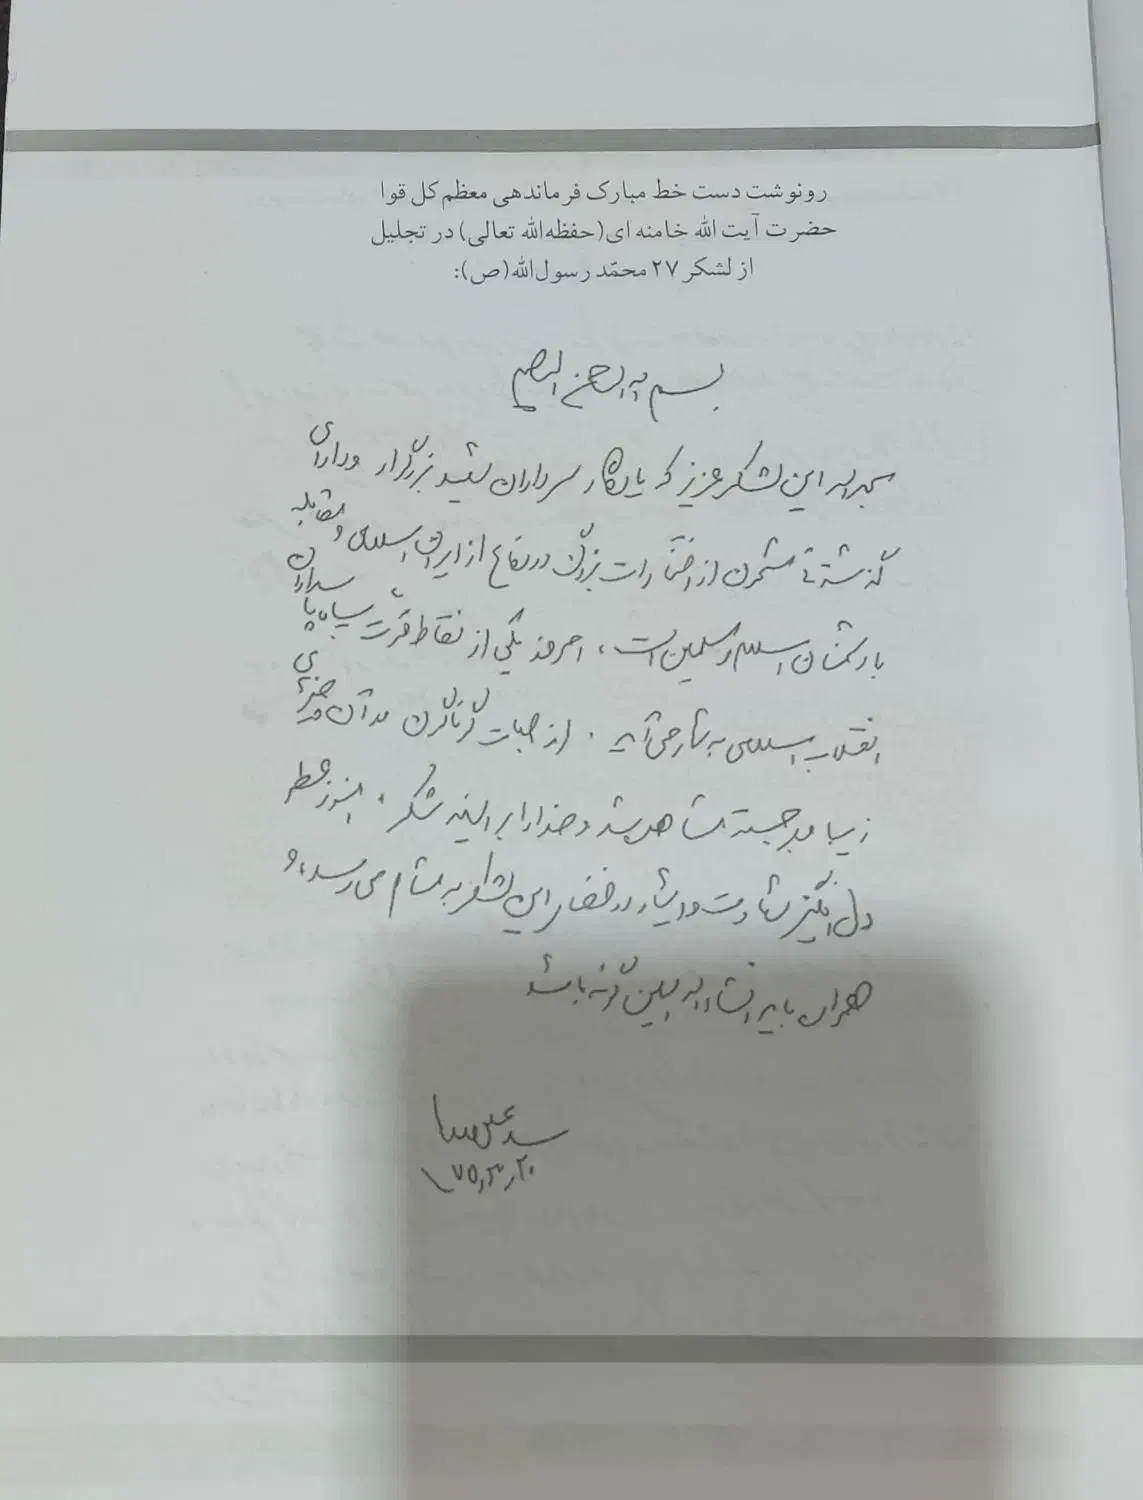 رونوشت دست خط مبارک فرماندهی معظم کل قوا
حضرت آیت الله خامنه ای(حفظه‌الله تعالی) در تجلیل
از لشکر ۲۷ محمّد رسول‌الله(ص):
بسم الله الرحمن الرحیم
بحمدالله این لشکر عزیز که یادگار سرداران شهید بزرگوار و دارای
گذشته‌ئی مشحون از افتخارات بزرگ در دفاع از ایران اسلامی و مقابله
با دشمنان اسلام و مسلمین است، امروز یکی از نقاط قوت سپاه پاسداران
انقلاب اسلامی به شمار می‌آید. از جهات گوناگون در آن چیزهای
زیبا و برجسته مشاهده شد و خدا را بر این شکر. هنوز عطر
دل انگیز شهادت و ایثار در فضای این لشکر به مشام می‌رسد، و
همواره باید انشاءالله همین گونه باشد
سید علی خامنه‌ای